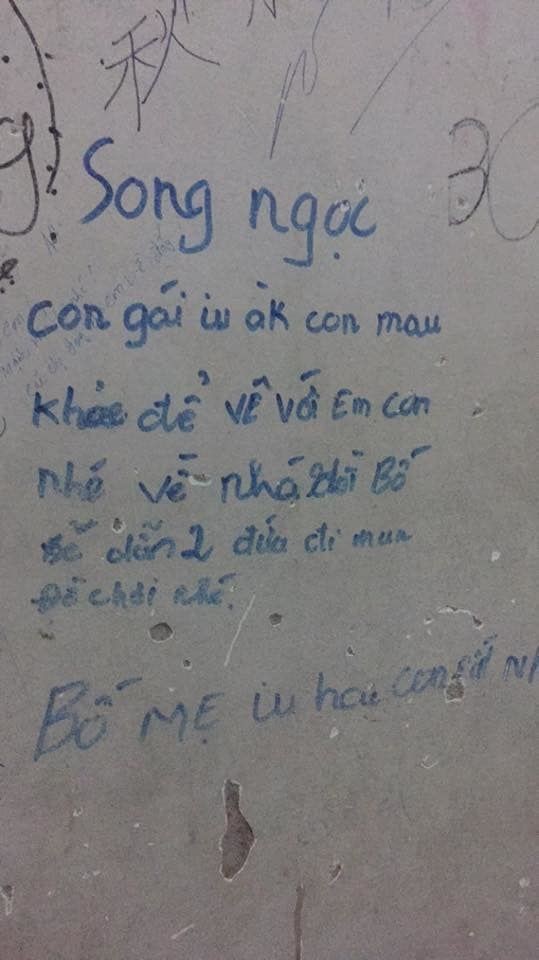 秋
30
Song ngọc
con gái iu àk con mau
khỏe để VỀ Với Em con
nhé về nhà rồi Bố
sẽ dẫn 2 đứa đi mua
Đồ chơi nhé.
BỐ MẸ iu hai con